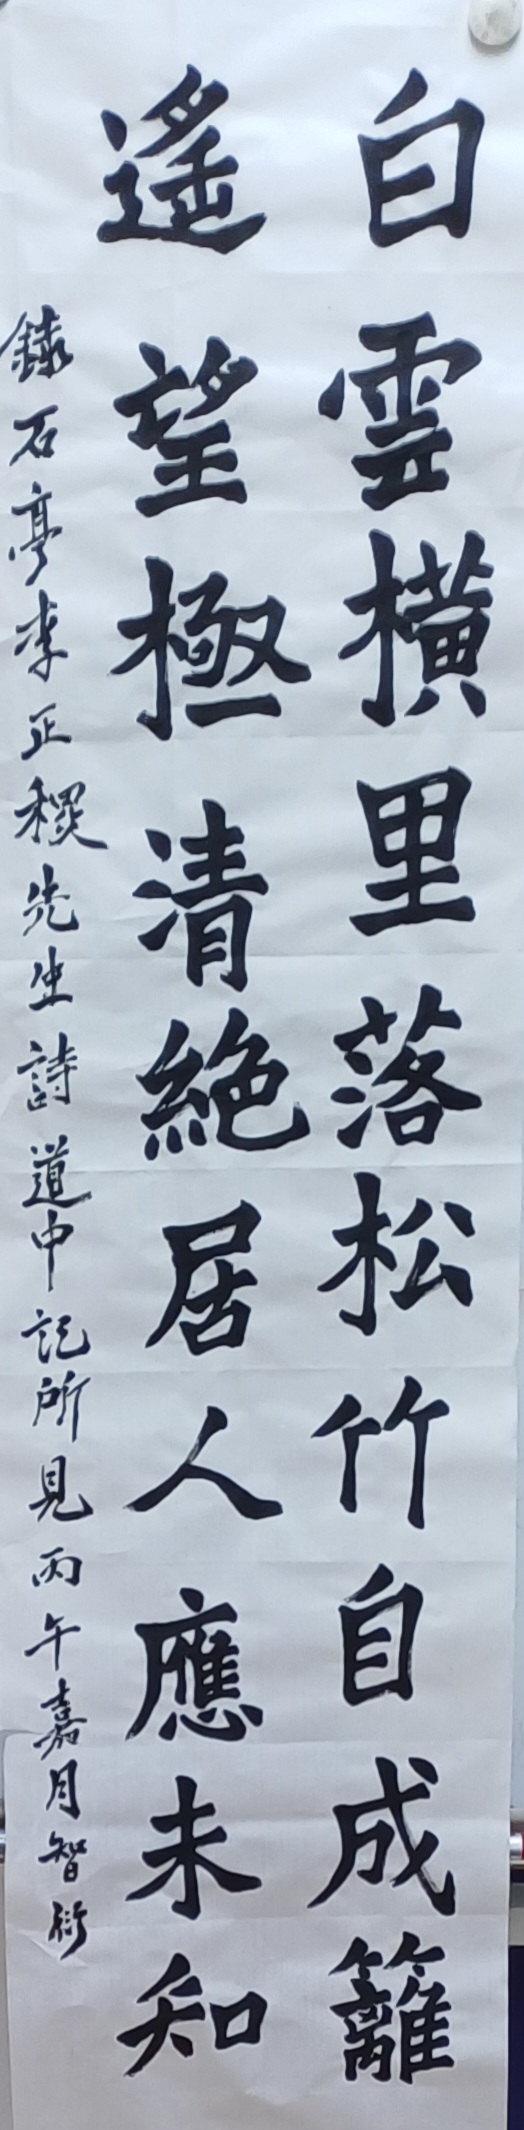 白雲橫里落松竹自成籬
遙望極清絶居人應未知
錄石亭李正稷先生詩道中記所見丙午嘉月智衍